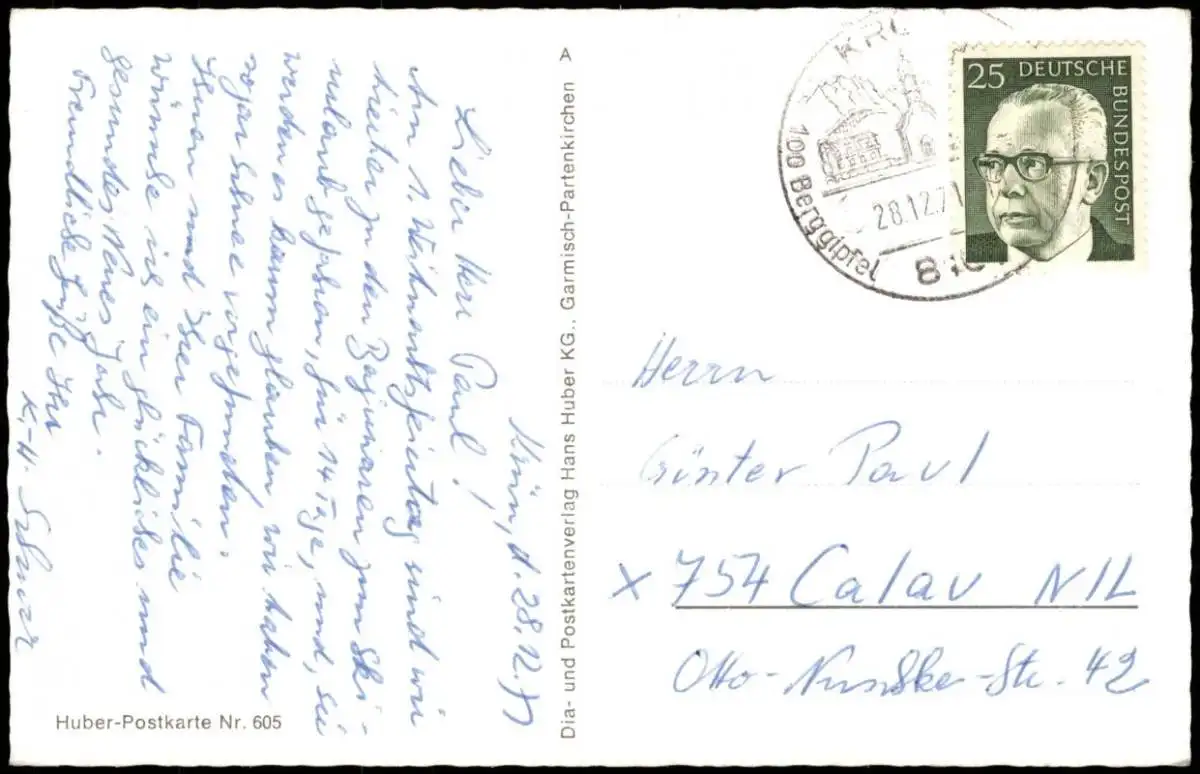 Krün, d. 28.12.71
Lieber Herr Paul!
Am 1. Weihnachtsfeiertag sind wir
hierher zu den Bajuwaren zum Ski-
urlaub gefahren, für 14 Tage, und, Sie
werden es kaum glauben, wir haben
sogar Schnee vorgefunden.
Ihnen und Ihrer Familie
wünsche ich ein glückliches und
gesundes Neues Jahr.
Freundliche Grüße Ihr
K.-H.
Huber-Postkarte Nr. 605
A
Dia- und Postkartenverlag Hans Huber KG., Garmisch-Partenkirchen
100 Berggipfel
28.12.71
25 DEUTSCHE
BUNDESPOST
Herrn
Günter Paul
x 754 Calau N/L
Otto-Nuschke-Str. 42